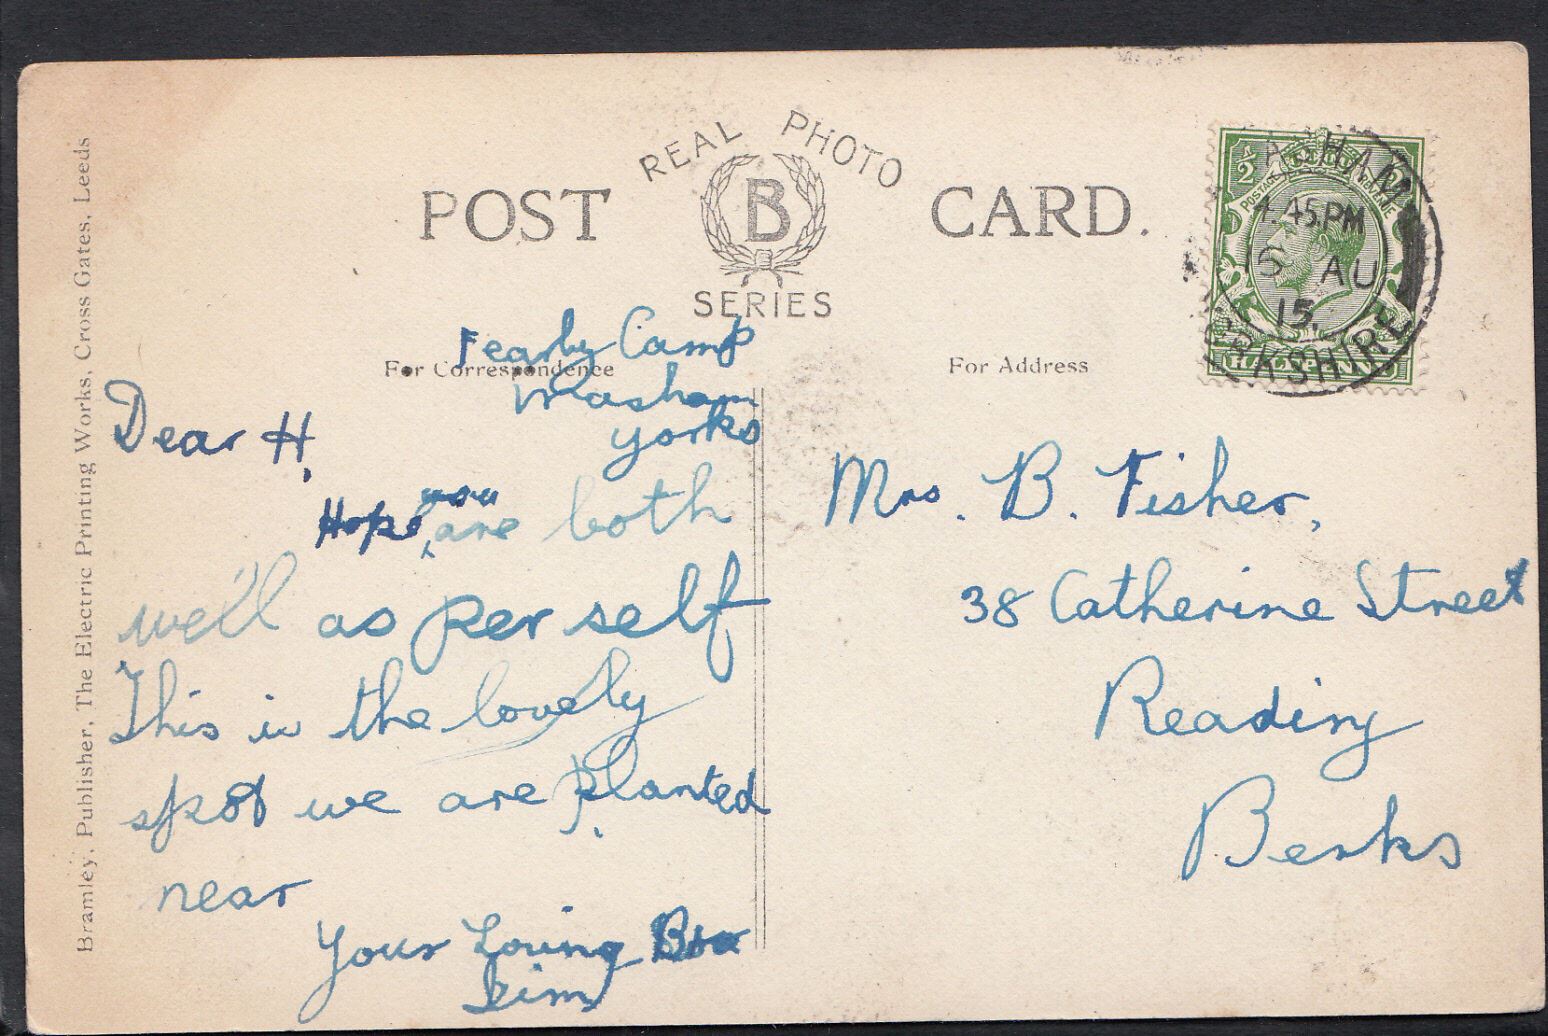 REAL PHOTO
POST B CARD.
SERIES
For Correspondence
For Address
Bramley, Publisher, The Electric Printing Works, Cross Gates, Leeds
Fearby Camp
Masham
Yorks
Dear H,
Hope you are both
well as per self
This is the lovely
spot we are planted
near
Your Loving Bro
Jim
Mrs. B. Fisher,
38 Catherine Street
Reading
Berks
MASHAM
4.45 PM
6 AU
15
YORKSHIRE
½
POSTAGE
HALFPENNY